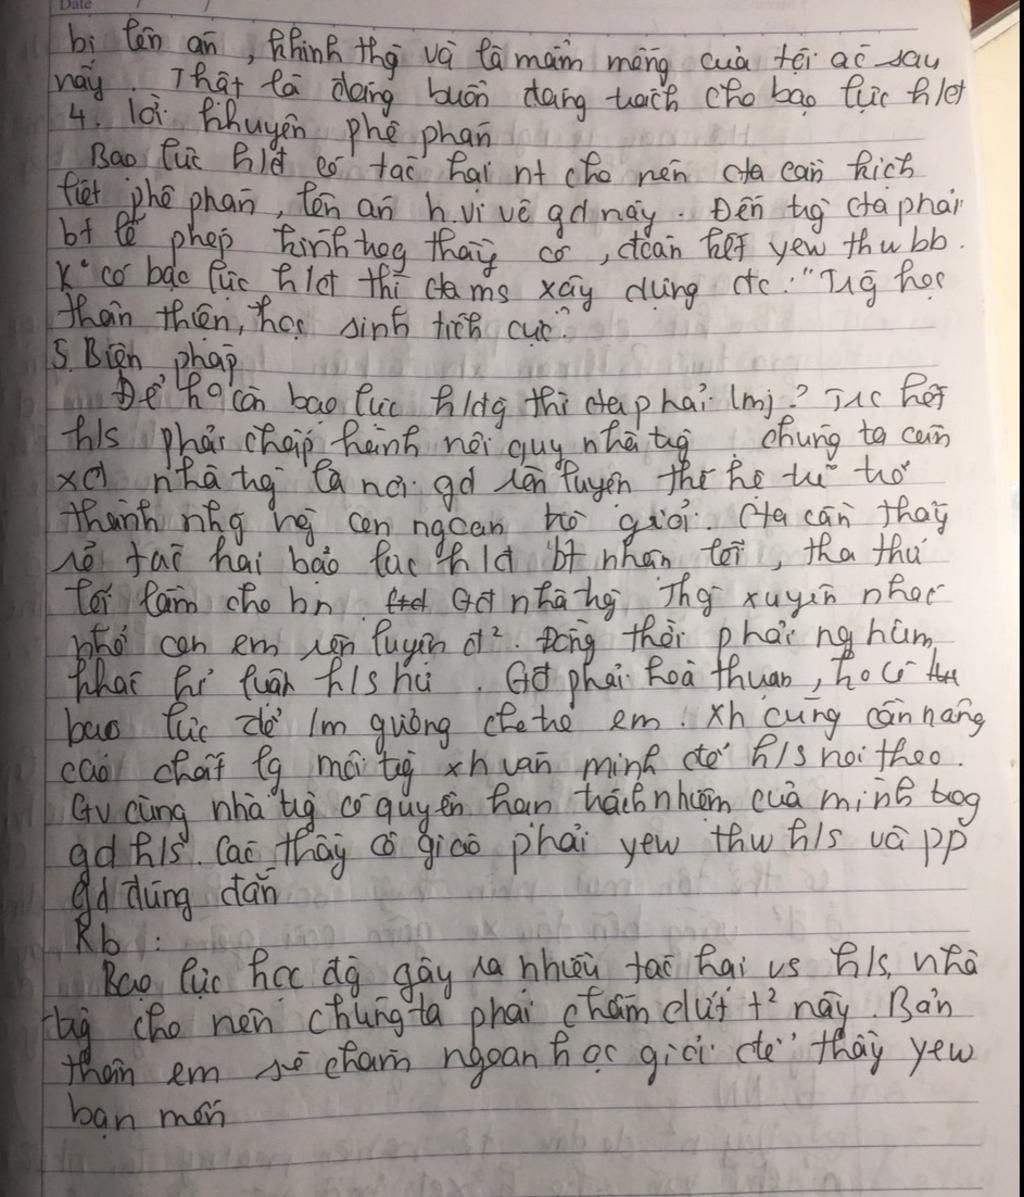 Date / /
bị lên án, khinh thg và là mầm mống của tội ác sau
này. Thật là đáng buồn đáng trách cho bạo lực h/đ
4. lời khuyên phê phán
Bạo lực h/đ có tác hại nt cho nên cta cần kịch
liệt phê phán, lên án h.vi vô gd này. Đến tрg cta phải
bt lễ phép kính trọg thầy cô, đoàn kết yew thw bb.
K° có bạo lực h/đ thì cta ms xây dựng đc: "Trg học
thân thiện, học sinh tích cực".
5. Biện pháp
Để k° còn bạo lực h/đg thì cta phải lmj? Trc hết
h/s phải chấp hành nội quy nhà trg chúng ta cần
xđ nhà trg là nơi gd rèn luyện thế hệ trẻ trở
thành nhg ng con ngoan trò giỏi. Cta cần thấy
rõ tác hại bạo lực h/đ bt nhận lỗi, tha thứ
lỗi lầm cho bn. Gđ nhà trg Thg xuyên nhắc
nhở con em rèn luyện đ². Đồng thời phải nghiêm
khắc kỉ luật h/s hư. Gđ phải hoà thuận, ko có
bạo lực để lm gương cho trẻ em. Xh cũng cần nâng
cao chất lg môi trg xh văn minh để h/s noi theo.
Gv cùng nhà trg có quyền hạn trách nhiệm của mình trog
gd h/s. Các thầy cô giáo phải yew thw h/s và pp
gd đúng đắn
Kb:
Bạo lực học đg gây ra nhiều tác hại vs h/s, nhà
trg cho nên chúng ta phải chấm dứt t² này. Bản
thân em sẽ chăm ngoan học giỏi để thầy yew
bạn mến